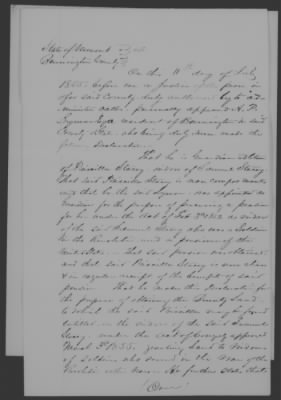 State of Vermont } SS
Bennington County }
On this 11th day of July
1855 before me a Justice of the peace in
& for said County duly authorized by law to ad-
minister oaths personally appeared A. P.
Lyman Esqr a resident of Bennington in said
County & State who being duly sworn made the
following Declaration
That he is Guardian
of Priscilla Story widow of Samuel Story
That said Priscilla Story is non compos mentis
and that he the said Lyman was appointed as
Guardian for the purpose of procuring a pension
for her under the Act of Feb 3d 1853 as widow
of the said Samuel Story who was a Soldier
in the Revolution and a pensioner of the
United States. That said pension was obtained
and that said Priscilla Story is now alive
& in regular receipt of the benefit of said
pension That he makes this Declaration for
the purpose of obtaining the Bounty Land
to which the said Priscilla may be found
entitled as the widow of the said Samuel
Story under the act of Congress approved
March 3d 1855 granting Land to widows
of Soldiers who served in the War of the
Revolution He further states that
(Over)